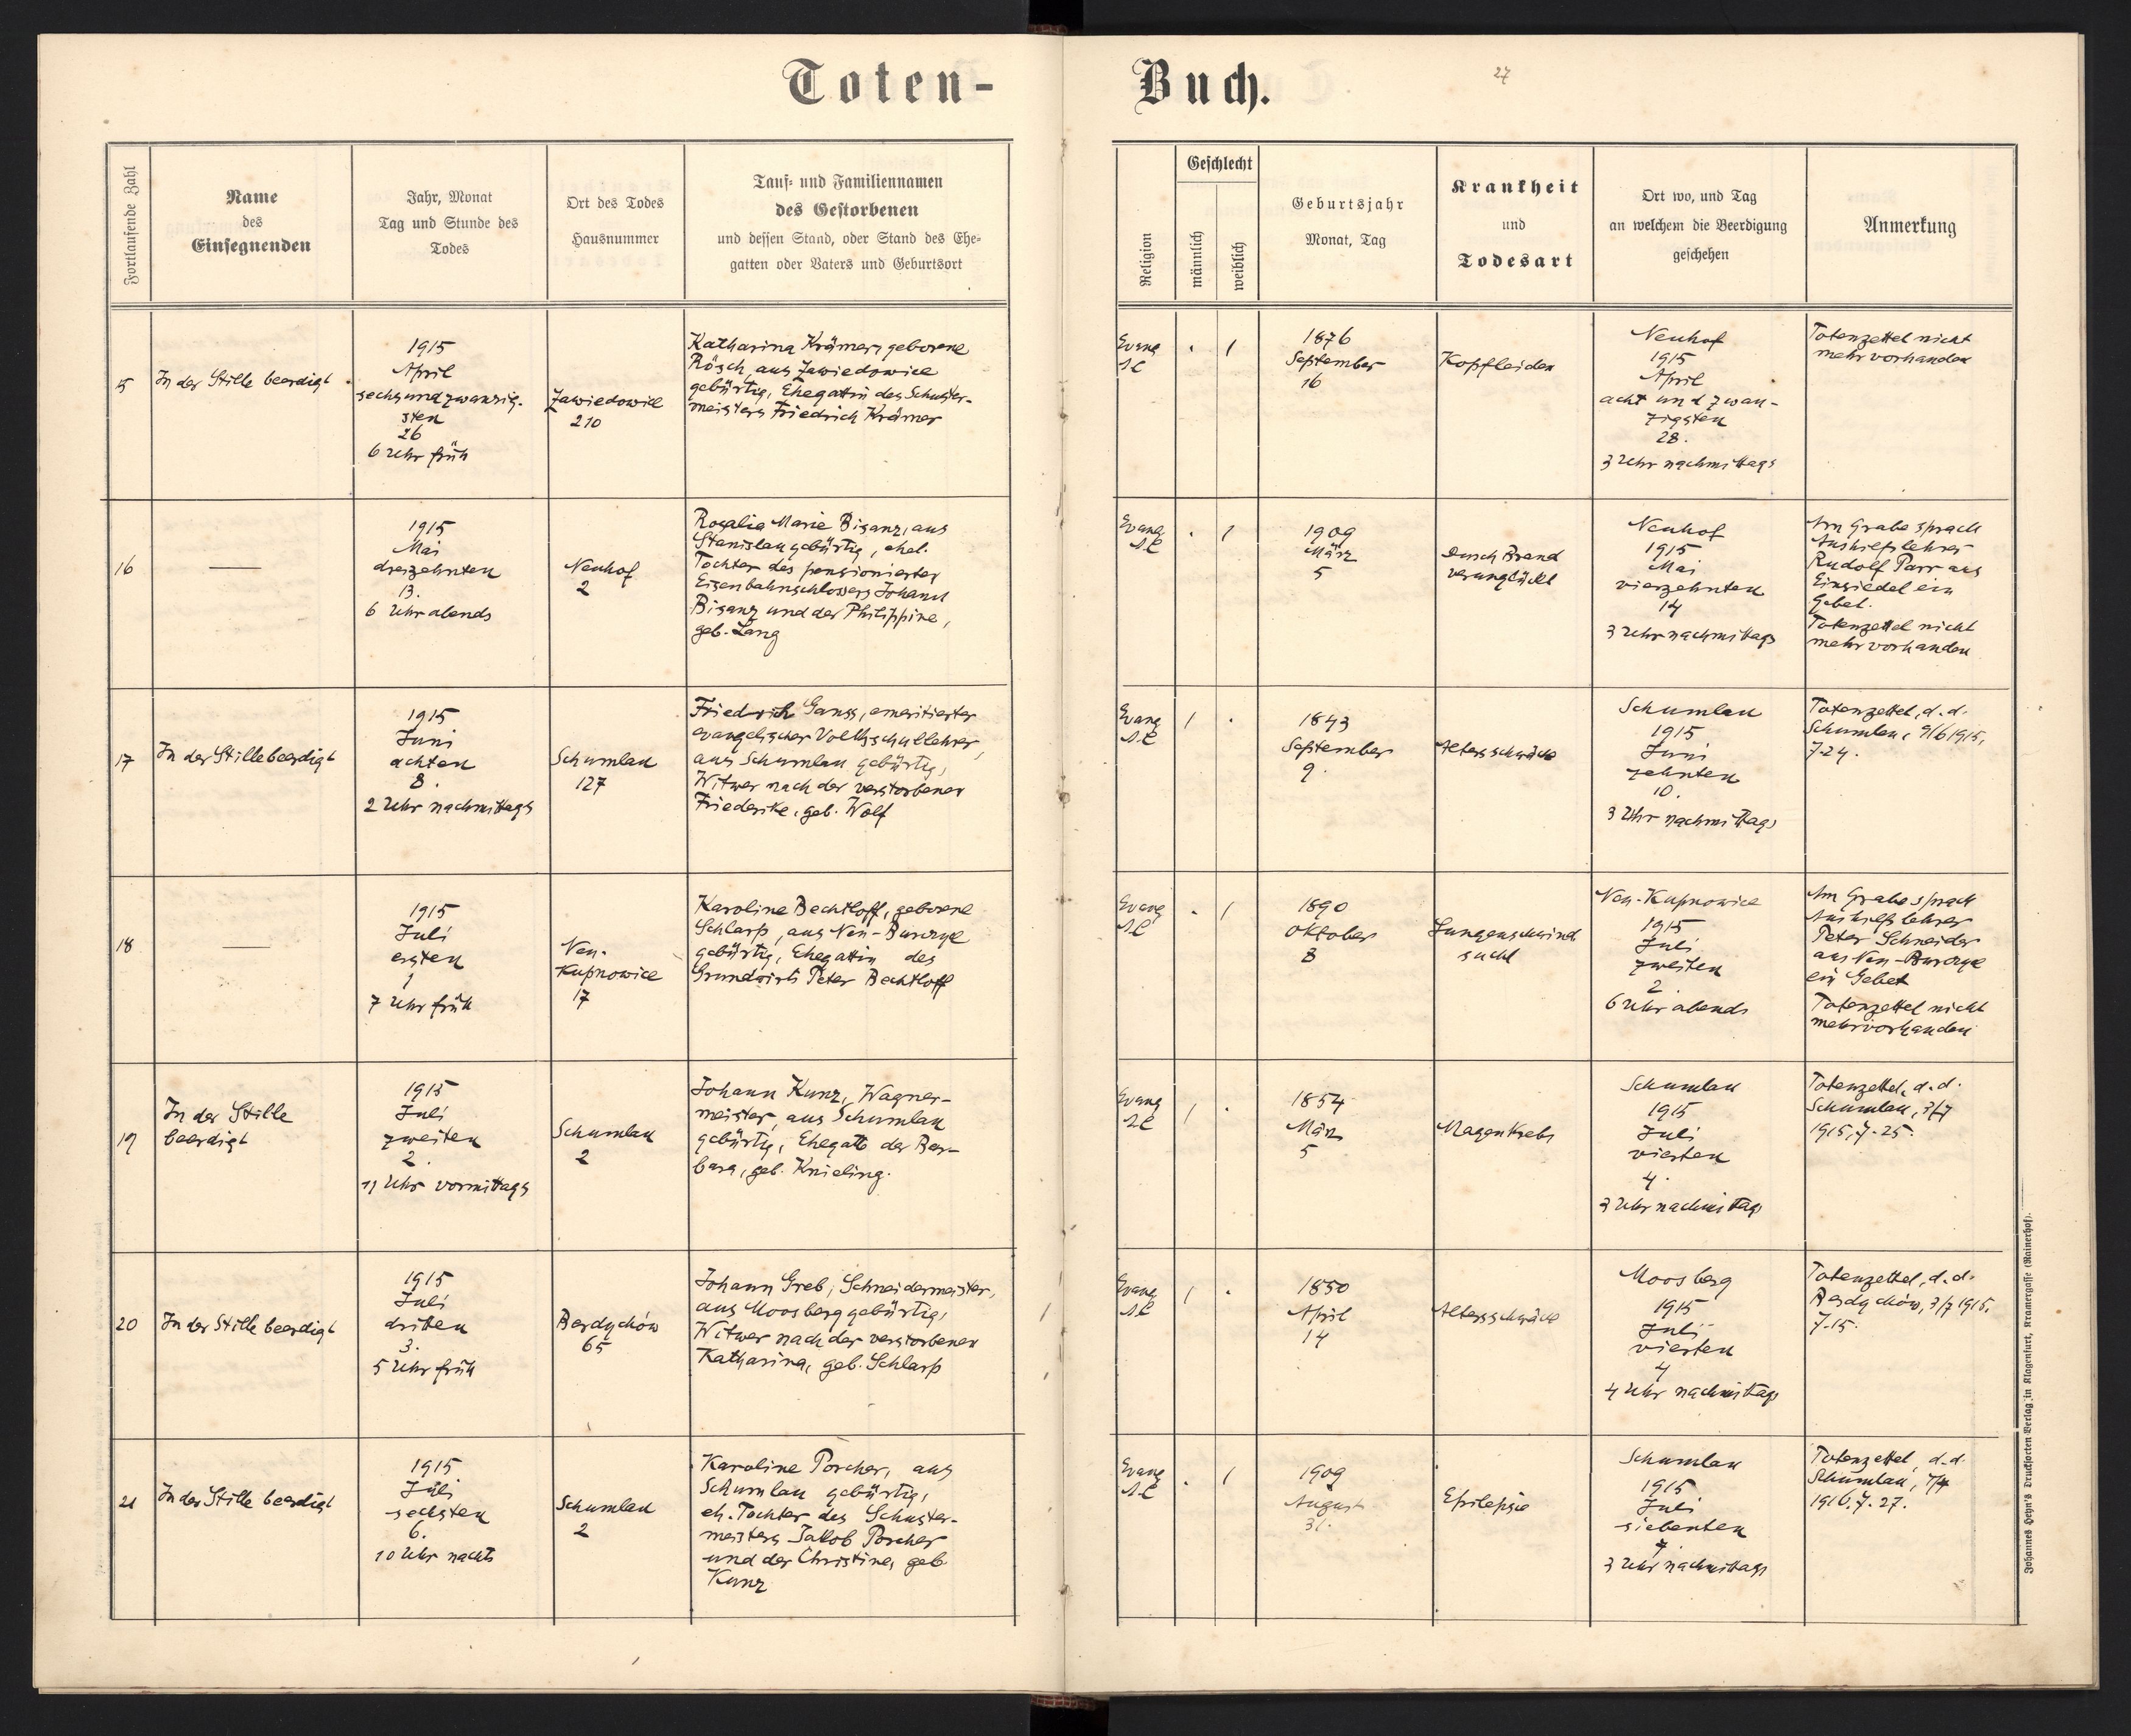 Toten-
Buch.
27
Fortlaufende Zahl
Name
des
Einsegnenden
Jahr, Monat
Tag und Stunde des
Todes
Ort des Todes
Hausnummer
Tauf- und Familiennamen
des Gestorbenen
und dessen Stand, oder Stand des Ehe-
gatten oder Vaters und Geburtsort
Religion
Geschlecht
männlich
weiblich
Geburtsjahr
Monat, Tag
Krankheit
und
Todesart
Ort wo, und Tag
an welchem die Beerdigung
geschehen
Anmerkung
15
In der Stille beerdigt
1915
April
sechsundzwanzig-
sten
26
6 Uhr früh
Zawiedowice
210
Katharina Krämer, geborene
Rösch, aus Zawiedowice
gebürtig, Ehegattin des Schuster-
meisters Friedrich Krämer
Evang
A.C
1
1876
September
16
Kopfleiden
Neuhof
1915
April
acht und zwan-
zigsten
28.
3 Uhr nachmittags
Totenzettel nicht
mehr vorhanden
16
—
1915
Mai
dreizehnten
13.
6 Uhr abends
Neuhof
2
Rosalia Marie Bisanz, aus
Stanislau gebürtig, ehel.
Tochter des pensionierter
Eisenbahnschlossers Johann
Bisanz und der Philippine,
geb. Lang
Evang
A.C
1
1909
März
5
durch Brand
verunglückt
Neuhof
1915
Mai
vierzehnten
14
3 Uhr nachmittags
Am Grabe sprach
Aushilfslehrer
Rudolf Parr aus
Einsiedel ein
Gebet.
Totenzettel nicht
mehr vorhanden
17
In der Stille beerdigt
1915
Juni
achten
8.
2 Uhr nachmittags
Schumlau
127
Friedrich Ganss, emeritierter
evangelischer Volksschullehrer,
aus Schumlau gebürtig,
Witwer nach der verstorbenen
Friederike, geb. Wolf
Evang
A.C
1
1843
September
9.
Altersschwäche
Schumlau
1915
Juni
zehnten
10.
3 Uhr nachmittags
Totenzettel, d.d.
Schumlau, 9/6 1915,
Z.24.
18
—
1915
Juli
ersten
1
7 Uhr früh
Neu-
Kupnowice
17
Karoline Bechtloff, geborene
Schlarp, aus Neu-Burczyce
gebürtig, Ehegattin des
Grundwirts Peter Bechtloff
Evang
A.C
1
1890
Oktober
8
Lungenschwind
sucht
Neu-Kupnowice
1915
Juli
zweiten
2.
6 Uhr abends
Am Grabe sprach
Aushilfslehrer
Peter Schneider
aus Neu-Burczyce
ein Gebet
Totenzettel nicht
mehr vorhanden
19
In der Stille
beerdigt
1915
Juli
zweiten
2.
11 Uhr vormittags
Schumlau
2
Johann Kunz, Wagner-
meister, aus Schumlau
gebürtig, Ehegatte der Bar-
bara, geb. Knieling.
Evang
A.C
1
1854
März
5
Magenkrebs
Schumlau
1915
Juli
vierten
4.
3 Uhr nachmittag
Totenzettel, d.d.
Schumlau, 3/7
1915, Z. 25.
20
In der Stille beerdigt
1915
Juli
dritten
3.
5 Uhr früh
Berdychów
65
Johann Greb, Schneidermeister,
aus Moosberg gebürtig,
Witwer nach der verstorbenen
Katharina, geb. Schlarp
Evang
A.C
1
1850
April
14
Altersschwäche
Moosberg
1915
Juli
vierten
4
4 Uhr nachmittags
Totenzettel, d.d.
Berdychów, 3/7 1915.
Z.15.
21
In der Stille beerdigt
1915
Juli
sechsten
6.
10 Uhr nachts
Schumlau
2
Karoline Porcher, aus
Schumlau gebürtig,
eh. Tochter des Schuster-
meisters Jakob Porcher
und der Christine, geb.
Kunz
Evang
A.C
1
1909
August
31.
Epilepsie
Schumlau
1915
Juli
siebenten
7
3 Uhr nachmittags
Totenzettel, d.d.
Schumlau,
Z. 27.
Johannes Heyn's Drucksorten Verlag in Klagenfurt, Kramergasse (Rainerhof).